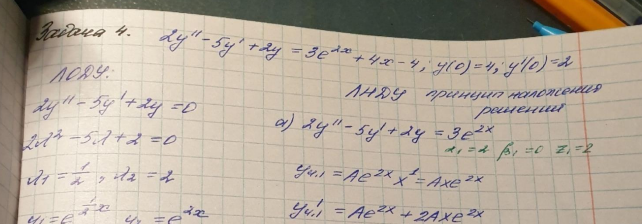 Задача 4. 2y'' - 5y' + 2y = 3e^{2x} + 4x - 4; y(0) = 4; y'(0) = 2
ЛОДУ:
2y'' - 5y' + 2y = 0
2λ² - 5λ + 2 = 0
λ₁ = 1/2, λ₂ = 2
y₁ = e^{1/2 x} y₂ = e^{2x}
ЛНДУ принцип наложения
решений
а) 2y'' - 5y' + 2y = 3e^{2x}
α₁ = 2 β₁ = 0 z₁ = 2
yч.1 = Ae^{2x} x¹ = Axe^{2x}
yч.1' = Ae^{2x} + 2Axe^{2x}